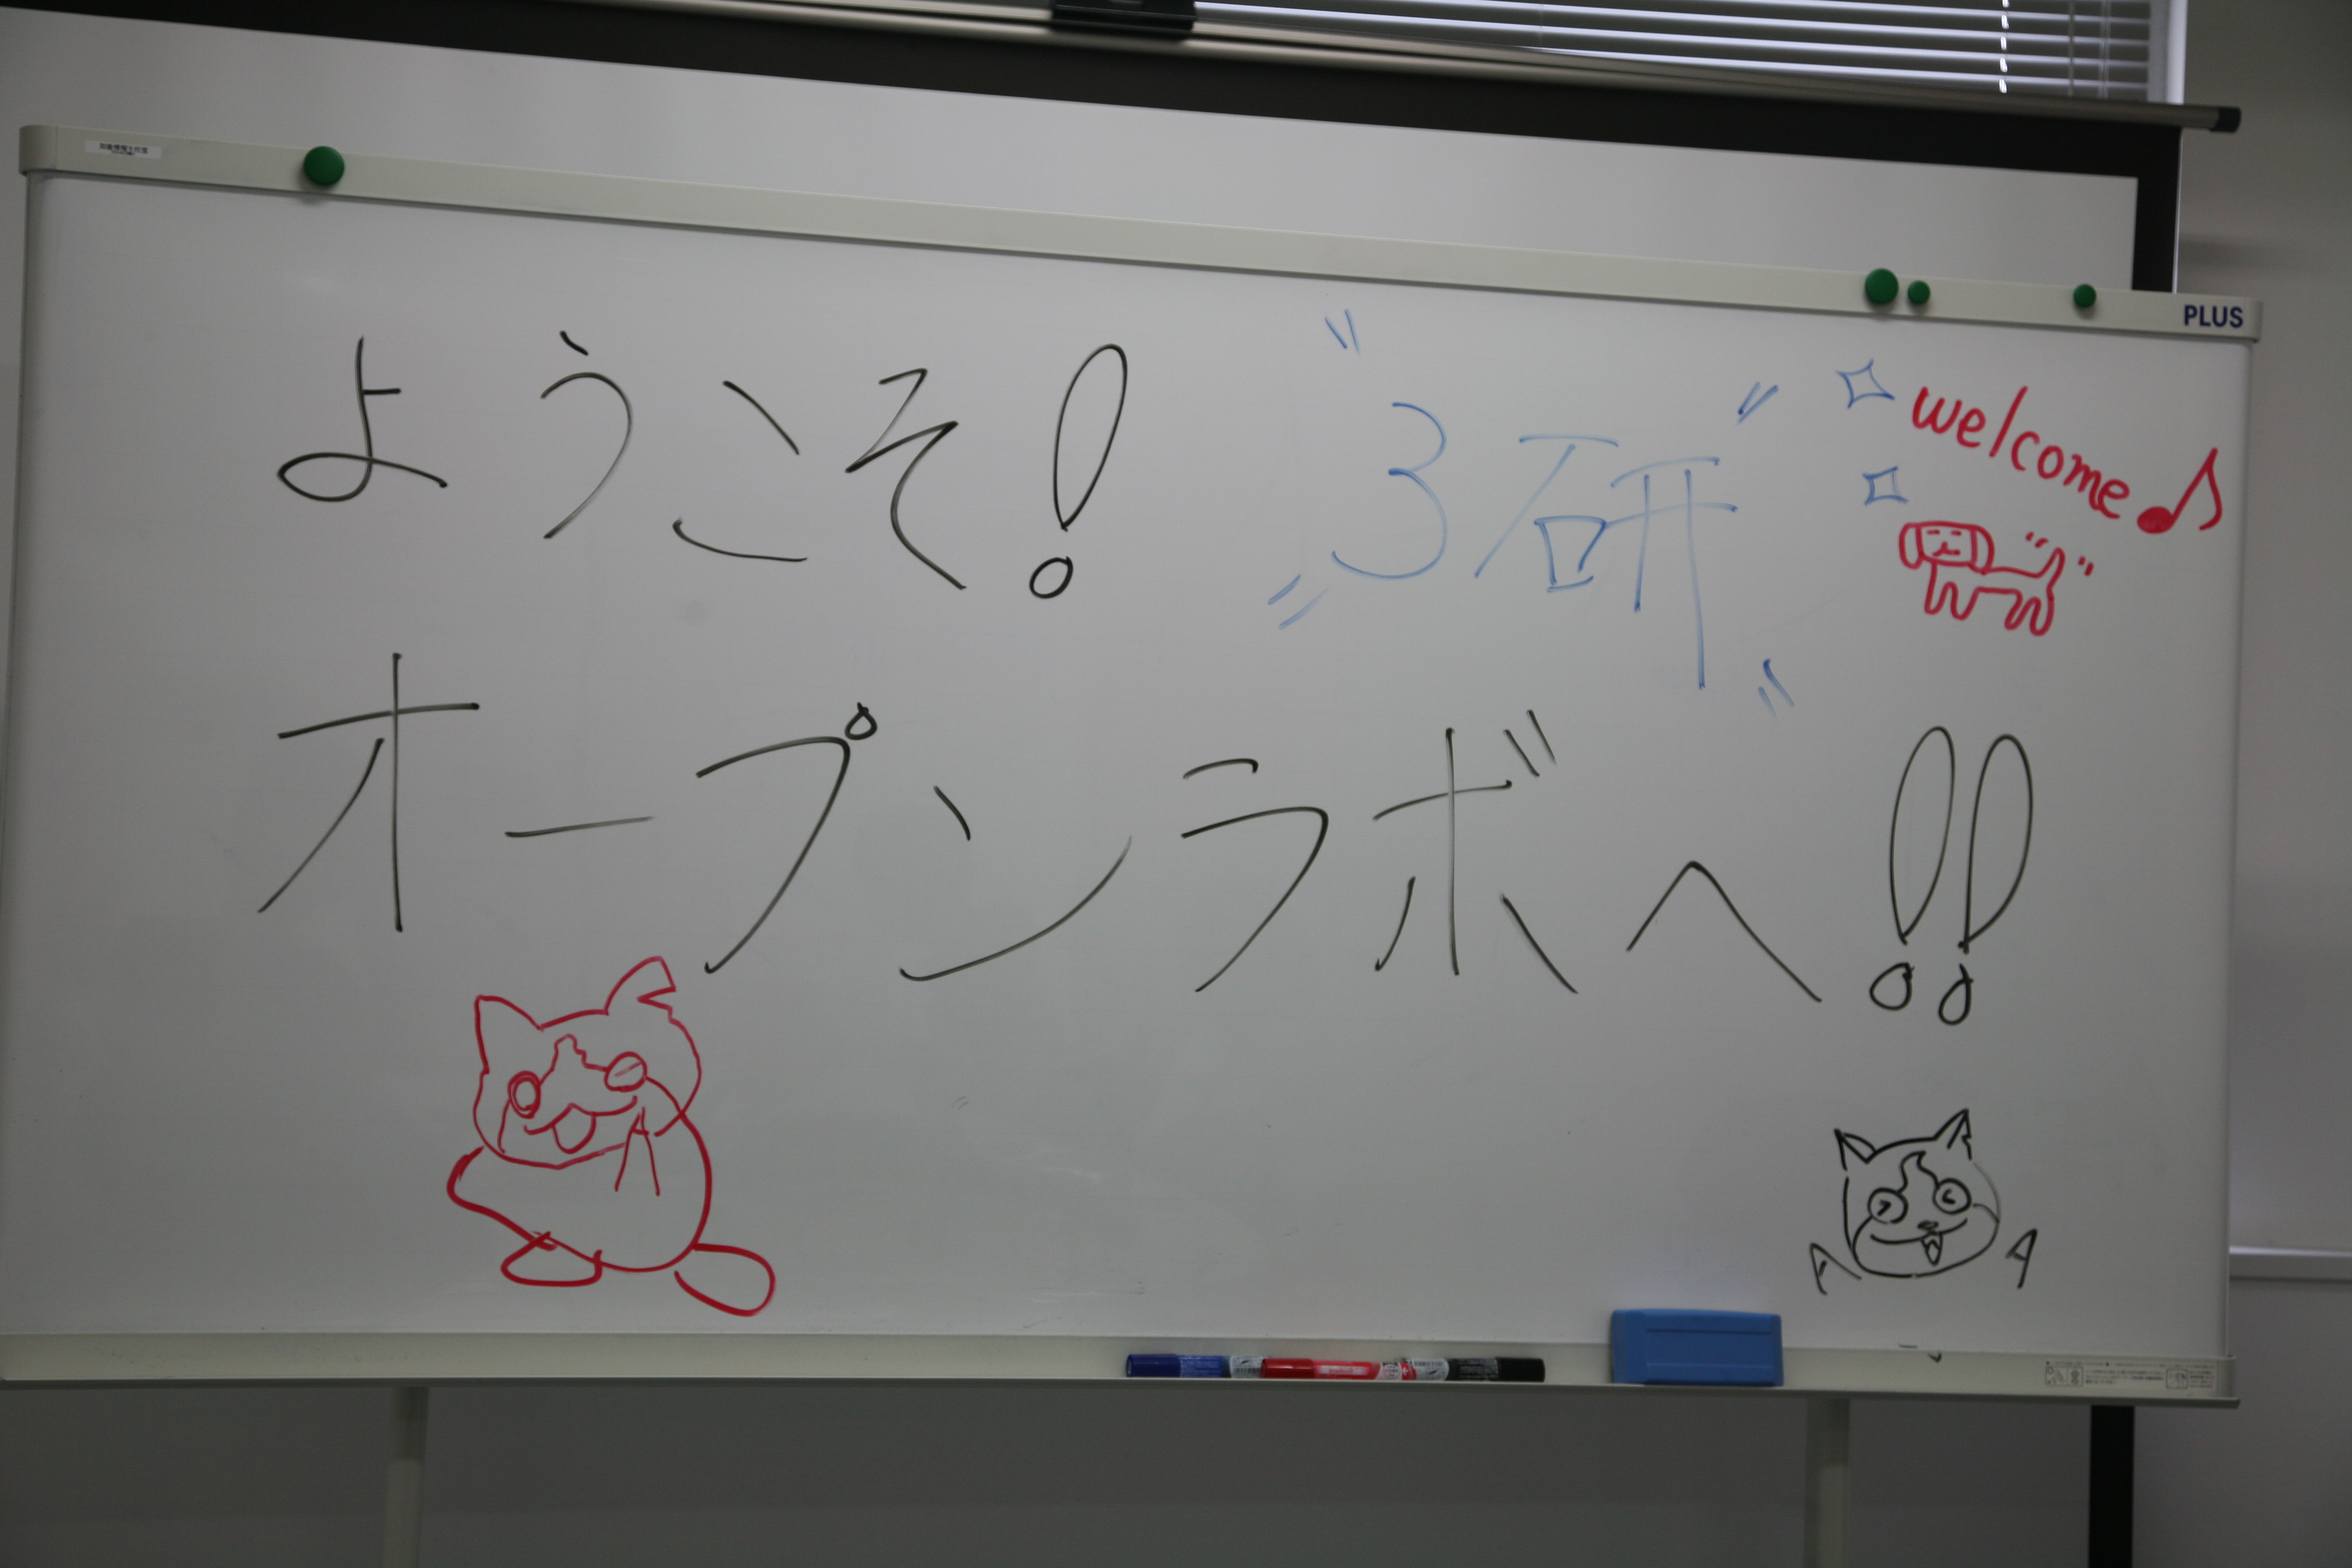 PLUS
ようこそ!
3研
welcome♪
オープンラボへ!!